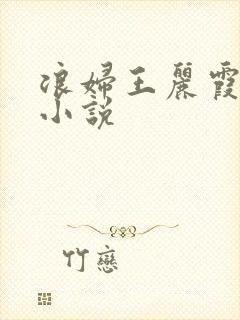 浪婦王麗霞
小說
竹戀